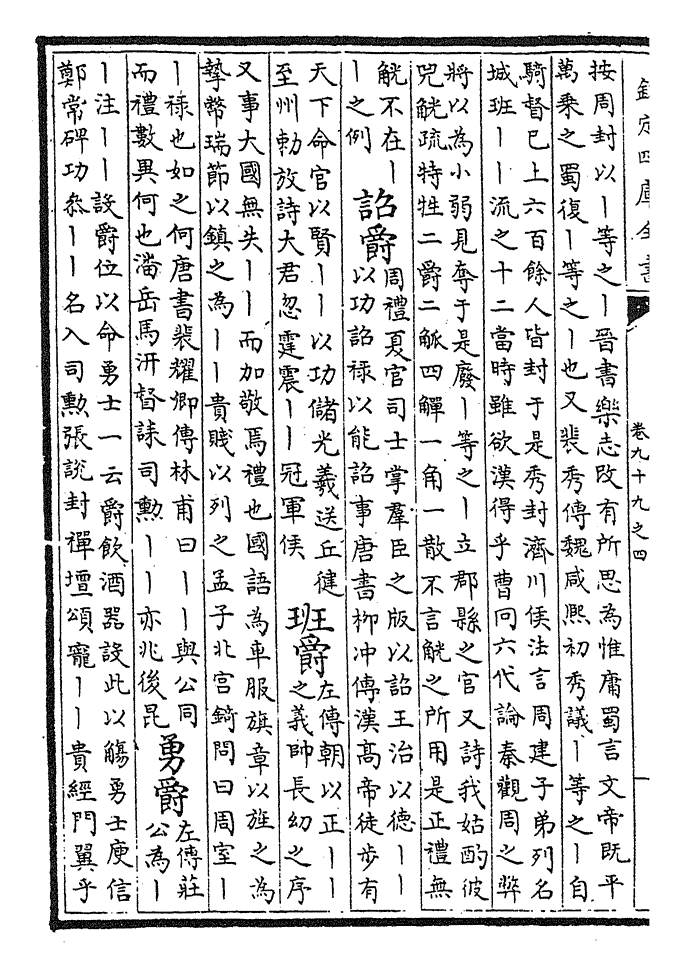 欽定四庫全書
卷九十九之四
按周封以丨等之丨晉書樂志改有所思為惟庸蜀言文帝既平
萬乘之蜀復丨等之丨也又裴秀傳魏咸熙初秀議丨等之丨自
騎督已上六百餘人皆封于是秀封濟川侯法言周建子弟列名
城班丨丨流之十二當時雖欲漢得乎曹冏六代論秦觀周之弊
將以為小弱見奪于是廢丨等之丨立郡縣之官又詩我姑酌彼
兕觥疏特牲二爵二觚四觶一角一散不言觥之所用是正禮無
觥不在丨
丨之例
詔爵
周禮夏官司士掌羣臣之版以詔王治以德丨丨
以功詔祿以能詔事唐書柳冲傳漢髙帝徒步有
天下命官以賢丨丨以功儲光羲送丘健
至州勅放詩大君忽霆震丨丨冠軍侯
班爵
左傳朝以正丨丨
之義帥長幼之序
又事大國無失丨丨而加敬焉禮也國語為車服旗章以旌之為
摯幣瑞節以鎮之為丨丨貴賤以列之孟子北宮錡問曰周室丨
丨祿也如之何唐書裴耀卿傳林甫曰丨丨與公同
而禮數異何也潘岳馬汧督誄司勲丨丨亦兆後昆
勇爵
左傳莊
公為丨
丨注丨丨設爵位以命勇士一云爵飲酒器設此以觴勇士庾信
鄭常碑功參丨丨名入司勲張說封禪壇頌寵丨丨貴經門翼乎